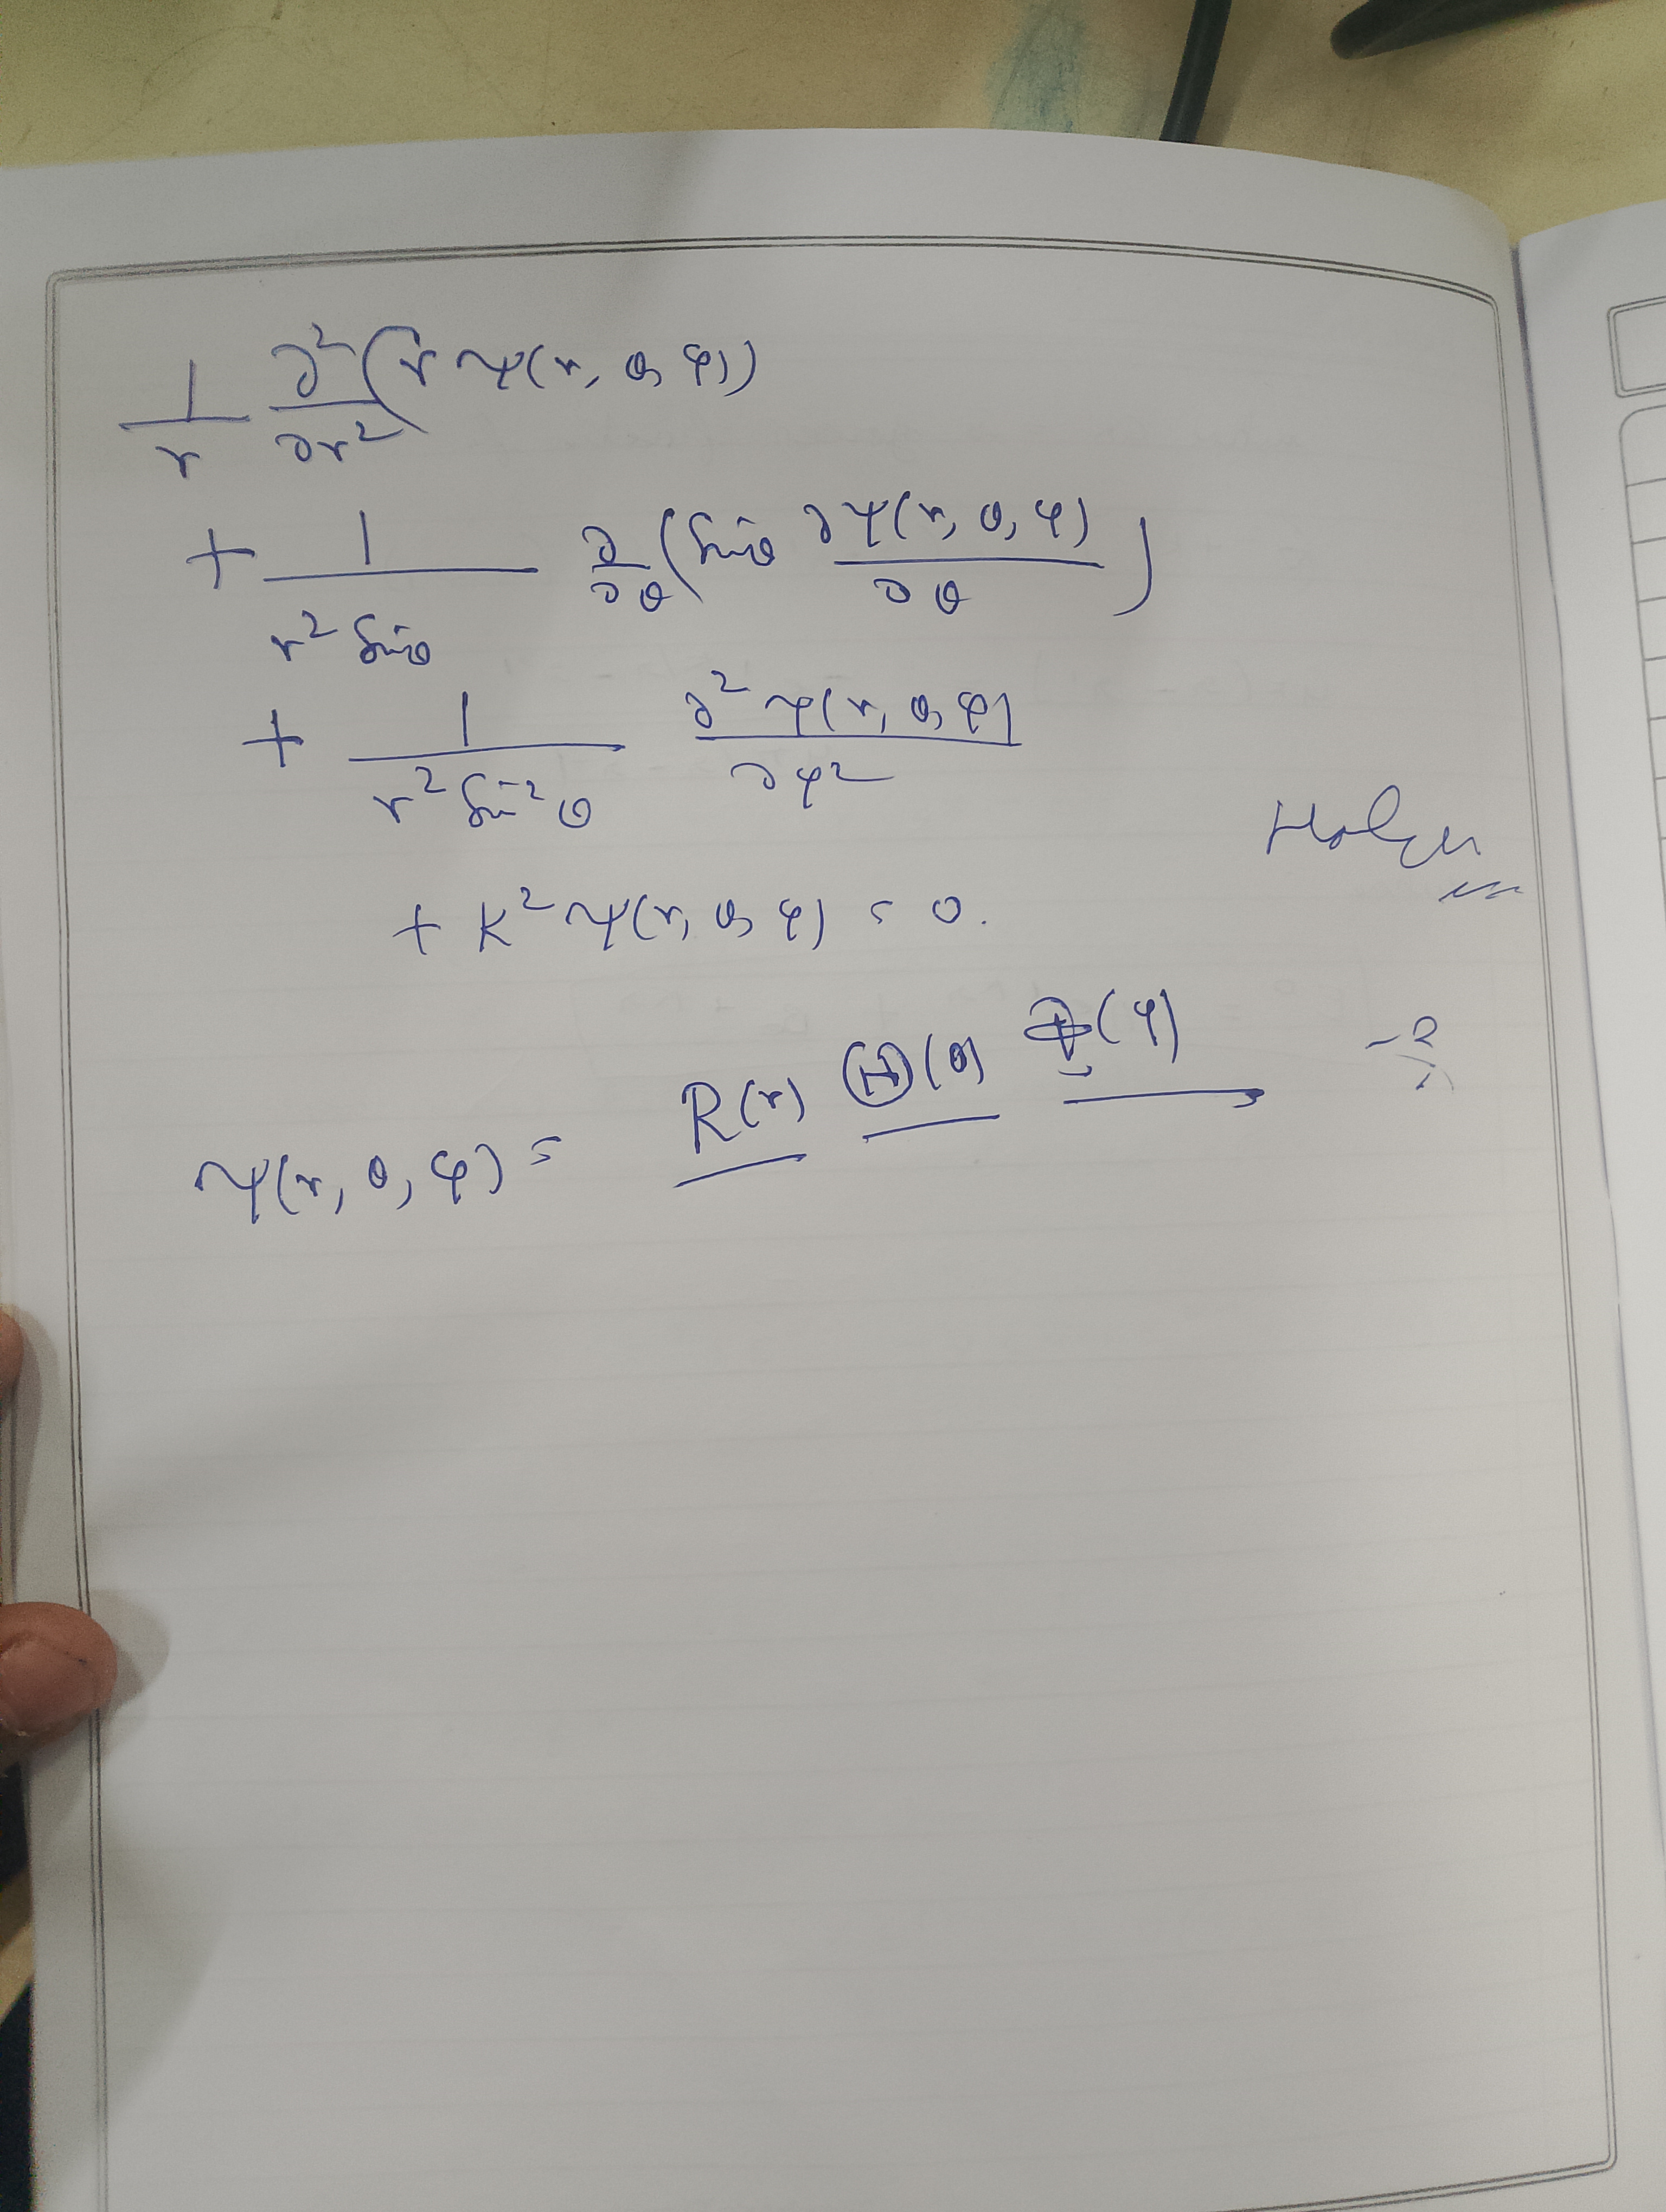 1/r ∂²/∂r² (r ψ(r, θ, φ))
+ 1/(r² sinθ) ∂/∂θ (sinθ ∂ψ(r, θ, φ)/∂θ)
+ 1/(r² sin²θ) ∂²ψ(r, θ, φ)/∂φ²
+ k² ψ(r, θ, φ) = 0.
ψ(r, θ, φ) = R(r) Θ(θ) Φ(φ)